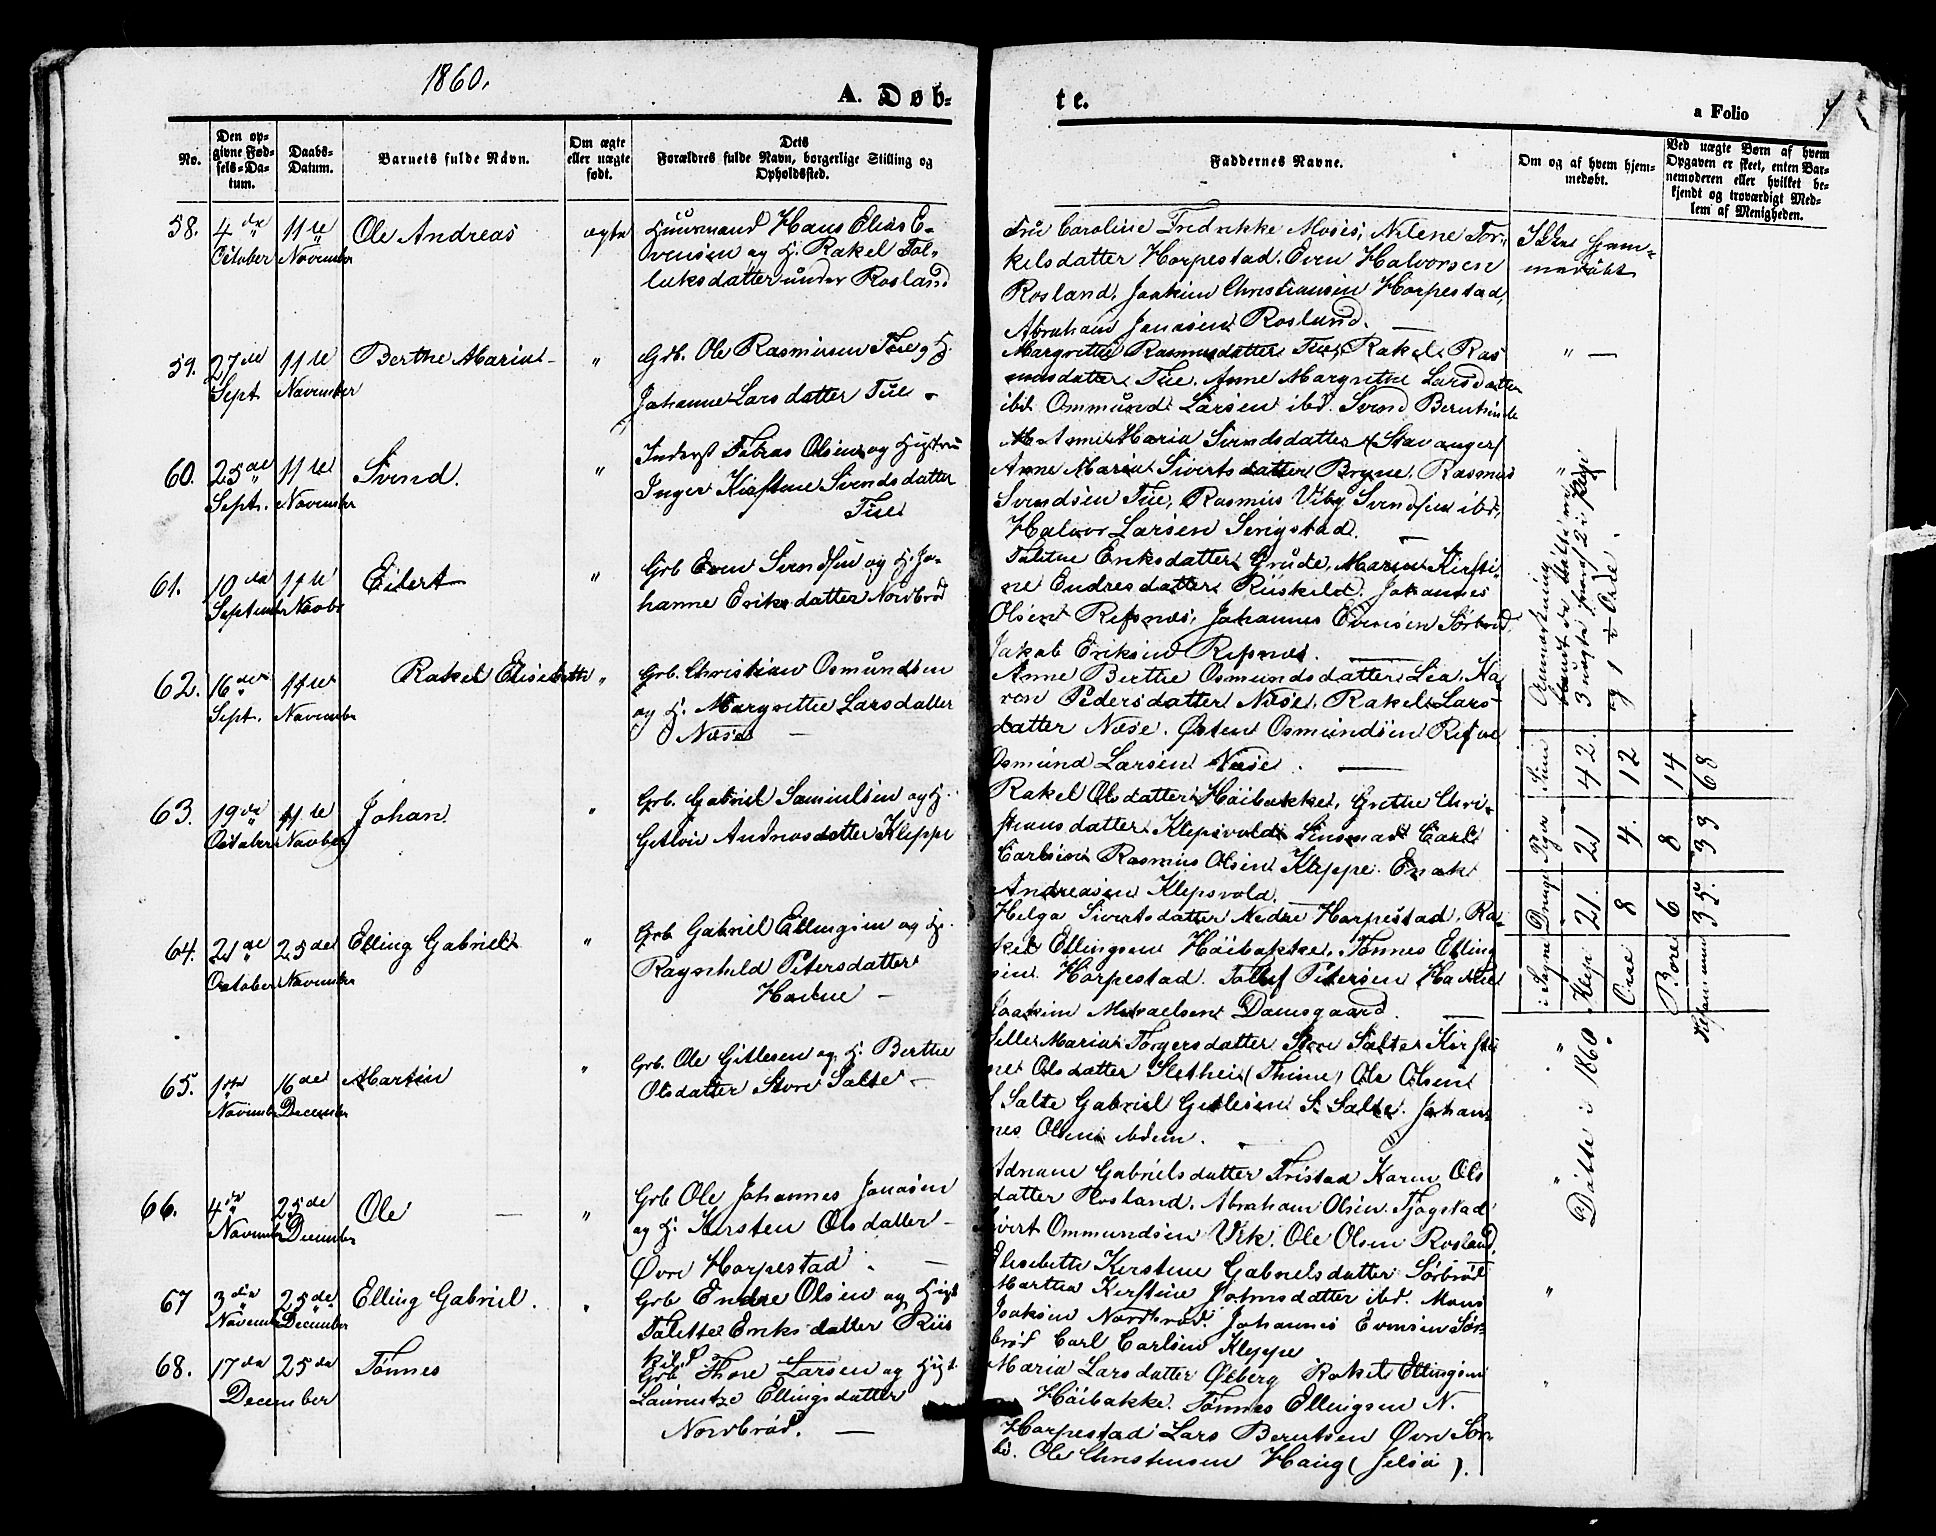 1860.
A. Døb-
te.
a Folio
7
No.
Den op-
givne Fød-
sels-Da-
tum.
Daabs-
Datum.
Barnets fulde Navn.
Om ægte
eller uægte
født.
Dets
Forældres fulde Navn, borgerlige Stilling og
Opholdssted.
Faddernes Navne.
Om og af hvem hjem-
medøbt.
Ved uægte Børn af hvem
Opgaven er skeet, enten Bar-
nemoderen eller hvilket be-
kjendt og troværdigt Med-
lem af Menigheden.
58.
4de
October
11te
November
Ole Andreas
ægte
Huusmand Hans Elias E-
vensen og H. Rakel Tol-
leksdatter under Rosland
Frü Caroline Fredrikke Moses, Nilene Tor-
kelsdatter Horpestad. Even Halvorsen
Rosland. Joakim Christiansen Horpestad,
Abraham Jonasen Rosland. —
Ikke hjem-
medöbt
59.
27de
Sept
11te
November
Berthe Marie
"
Grb. Ole Rasmusen Tüe og H.
Johanne Larsdatter Tüe -
Margrethe Rasmusdatter Tüe, Rakel Ras
musdatter Tüe. Anne Margrethe Larsdatter
ibd Ommünd Larsen ibd. Svend Berntsen
" —
60.
25de
Sept.
11te
November
Svend.
"
Inderst Tobias Olsen og Hustru
Inger Kirstine Svendsdatter
Tüe
Anne Maria Svendsdatter (Stavanger)
Anne Maria Sivertsdatter Bryne. Rasmus
Svendsen Tüe, Rasmus Viby Svendsen ibd,
Halvor Larsen Serigstad. —
"
61.
10de
September
11te
Novbr
Eilert
"
Grb Even Svendsen og H. Jo-
hanne Eriksdatter Nordbrød
Talette Eriksdatter Grüde, Maren Kirsti-
ne Endresdatter Riiskild. Johannes
Olsen Refsnes, Johannes Evensen Sörbrød,
Jakob Eriksen Refsnes. —
62.
16de
Sept.
11te
November
Rakel Elisebethe
"
Grb. Christian Osmündsen
og H. Margrethe Larsdatter
Næse —
Anne Berthe Osmundsdatter Lea, Ka-
ren Pedersdatter Næse. Rakel Lars-
datter Næse. Østen Osmündsen Refve
Osmünd Larsen Næse. —
63.
19de
October
11te
Novber
Johan
"
Grb. Gabriel Samuelsen og H.
Getlou Andreasdatter Kleppe
Rakel Olsdatter Höibakke, Grethe Chri-
stiansdatter Klepsvold Carl
Carlsen Rasmus Olsen Kleppe. Enok
Andreasen Klepsvold. —
64.
21de
October
25de
November
Elling Gabriel
"
Grb Gabriel Ellingsen og H.
Ragnhild Petersdatter
Hodne —
Helga Sivertsdatter Nedre Horpestad, Ra-
kel Ellingsen Höibakke, Tønnes Elling
sen Horpestad. Tolluf Petersen Hodne
Joakim Mikaelsen Damsgaard. —
65.
1ste
November
16de
December
Martin
"
Grb. Ole Gitlesen og H. Berthe
Olsdatter Store Salte —
Maria Torgersdatter Store Salte Kirsti
ne Olsdatter Slethei (Thime) Ole Olsen
S Salte Gabriel Gitlesen S. Salte. Johan-
nes Olsen ibdem. —
"
66.
4de
November
25de
December
Ole —
"
Grb Ole Johannes Jonasen
og H. Kirsten Olsdatter —
Øvre Horpestad. —
Adriane Gabrielsdatter Tristad Karen Ols
datter Rosland. Abraham Olsen Tjøgstad
Sivert Ommundsen Vik. Ole Olsen Rosland.
"
67
3die
November
25de
December
Elling Gabriel.
"
Grb Endre Olsen og Hust
Talette Eriksdatter Riis
kild.
Elisebethe Kirstine Gabrielsdatter Sörbröd
Marthea Kirstine Johnsdatter ibd. Mons
Joaksen Nordbrød. Johannes Evensen Sör-
bröd Carl Carlsen Kleppe
"
68.
17de
25de
December
Tönnes
Grb Thore Larsen og Hust
Laurentze Ellingsdatter
Nordbröd. —
Maria Larsdatter Öxberg Rakel Ellingsen
Höibakke. Tønnes Ellingsen N.
Horpestad Lars Berntsen Øvre Sör-
bø. Ole Christensen Haug (Jelsö).
"
Anmærkning
blandt de döbte ere
3 uægte hvoraf 2 i Klep
og 1 i Orre.
Döbte i 1860.
i Sogne Drenge Piger Sum
Klep 21. 21 42.
Orre 8 4. 12
Bore 6 8 14
tilsammen 35. 33 68